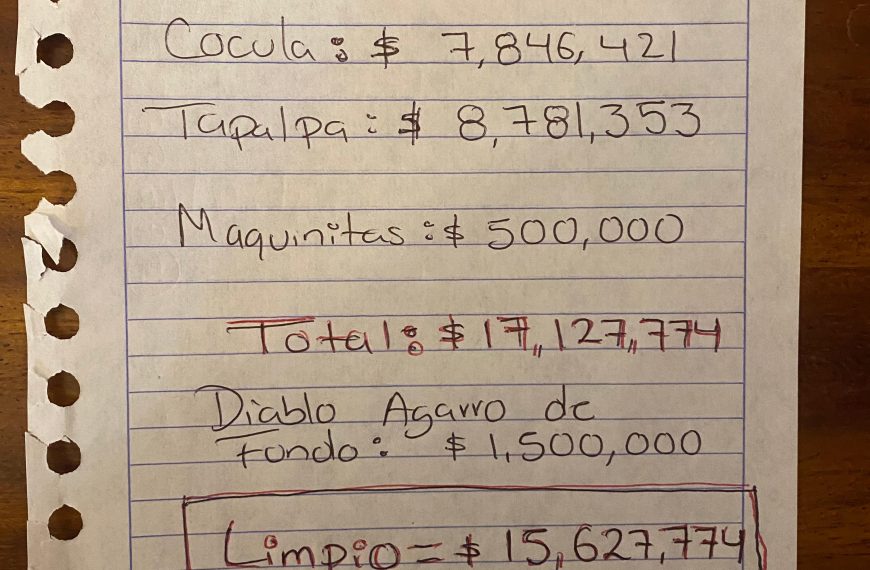 Cocula: $ 7,846,421
Tapalpa: $ 8,781,353
Maquinitas: $ 500,000
Total: $ 17,,127,,774
Diablo Agarro de
fondo: $ 1,500,000
Limpio = $ 15,627,774